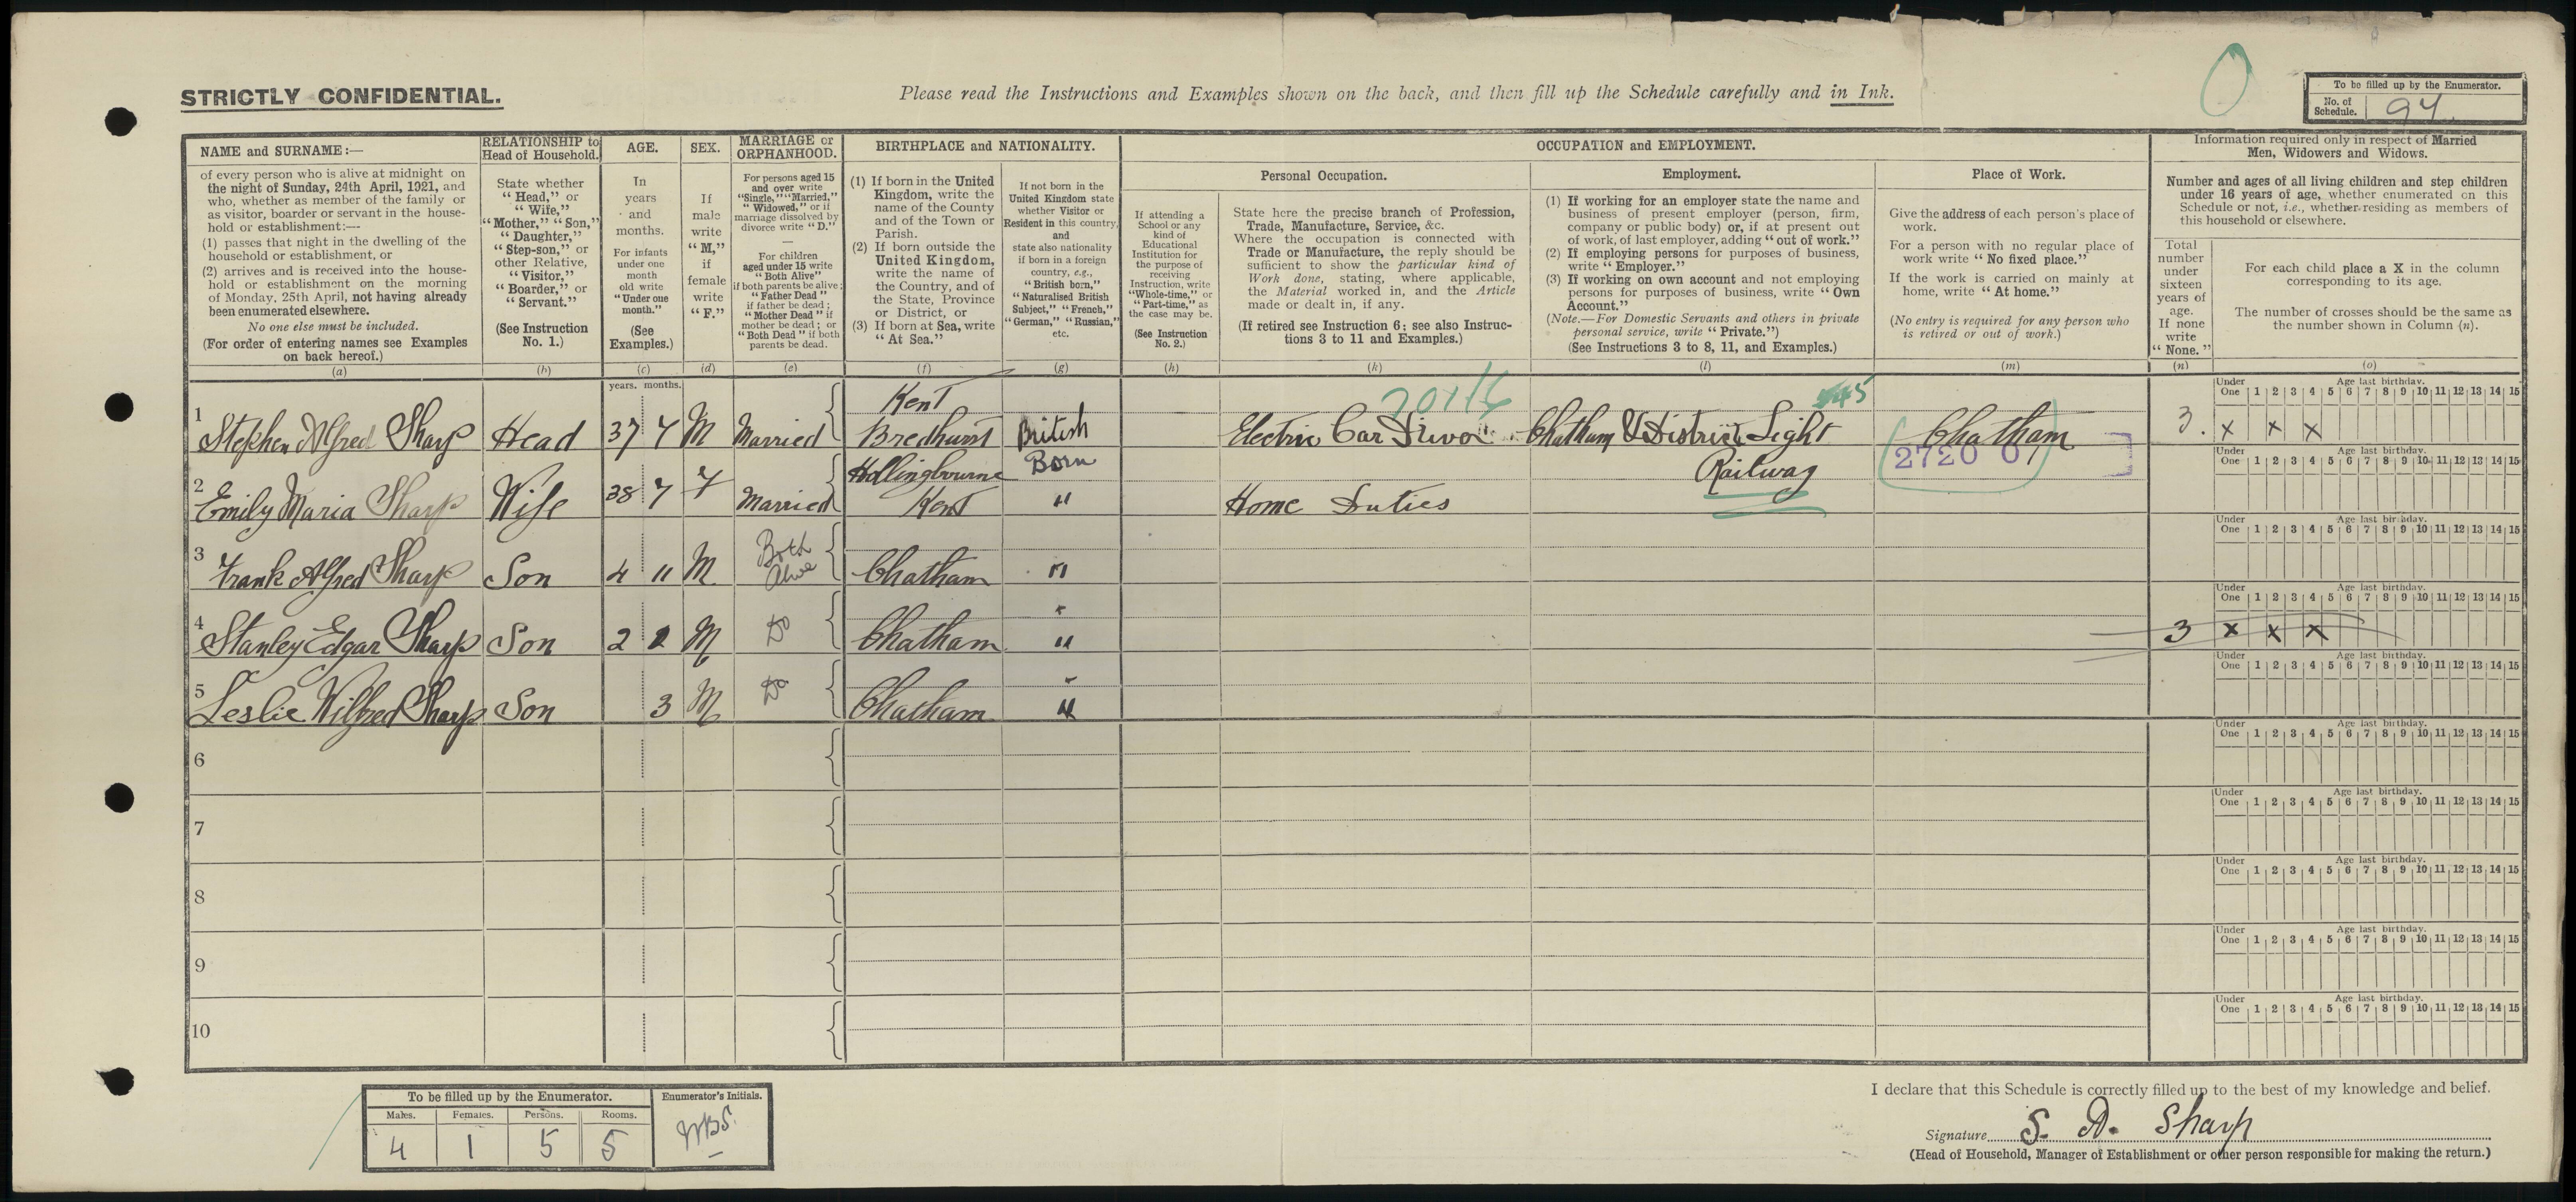 STRICTLY CONFIDENTIAL.
Please read the Instructions and Examples shown on the back, and then fill up the Schedule carefully and in Ink.
To be filled up by the Enumerator.
No. of Schedule. 94
NAME and SURNAME:—
of every person who is alive at midnight on
the night of Sunday, 24th April, 1921, and
who, whether as member of the family or
as visitor, boarder or servant in the house-
hold or establishment:—
(1) passes that night in the dwelling of the
household or establishment, or
(2) arrives and is received into the house-
hold or establishment on the morning
of Monday, 25th April, not having already
been enumerated elsewhere.
No one else must be included.
(For order of entering names see Examples
on back hereof.)
(a)
RELATIONSHIP to
Head of Household.
State whether
"Head," or
"Wife,"
"Mother," "Son,"
"Daughter,"
"Step-son," or
other Relative,
"Visitor,"
"Boarder," or
"Servant."
(See Instruction
No. 1.)
(b)
AGE.
In
years
and
months.
For infants
under one
month
old write
"Under one
month."
(See
Examples.)
(c)
SEX.
If
male
write
"M,"
if
female
write
"F."
(d)
MARRIAGE or
ORPHANHOOD.
For persons aged 15
and over write
"Single," "Married,"
"Widowed," or if
marriage dissolved by
divorce write "D."
—
For children
aged under 15 write
"Both Alive"
if both parents be alive;
"Father Dead"
if father be dead;
"Mother Dead" if
mother be dead; or
"Both Dead" if both
parents be dead.
(e)
BIRTHPLACE and NATIONALITY.
(1) If born in the United
Kingdom, write the
name of the County
and of the Town or
Parish.
(2) If born outside the
United Kingdom,
write the name of
the Country, and of
the State, Province
or District, or
(3) If born at Sea, write
"At Sea."
(f)
If not born in the
United Kingdom state
whether Visitor or
Resident in this country,
and
state also nationality
if born in a foreign
country, e.g.,
"British born,"
"Naturalised British
Subject," "French,"
"German," "Russian,"
etc.
(g)
OCCUPATION and EMPLOYMENT.
Personal Occupation.
If attending a
School or any
kind of
Educational
Institution for
the purpose of
receiving
Instruction, write
"Whole-time," or
"Part-time," as
the case may be.
(See Instruction
No. 2.)
(h)
State here the precise branch of Profession,
Trade, Manufacture, Service, &c.
Where the occupation is connected with
Trade or Manufacture, the reply should be
sufficient to show the particular kind of
Work done, stating, where applicable,
the Material worked in, and the Article
made or dealt in, if any.
(If retired see Instruction 6; see also Instruc-
tions 3 to 11 and Examples.)
(k)
Employment.
(1) If working for an employer state the name and
business of present employer (person, firm,
company or public body) or, if at present out
of work, of last employer, adding "out of work."
(2) If employing persons for purposes of business,
write "Employer."
(3) If working on own account and not employing
persons for purposes of business, write "Own
Account."
(Note.—For Domestic Servants and others in private
personal service, write "Private.")
(See Instructions 3 to 8, 11, and Examples.)
(l)
Place of Work.
Give the address of each person's place of
work.
For a person with no regular place of
work write "No fixed place."
If the work is carried on mainly at
home, write "At home."
(No entry is required for any person who
is retired or out of work.)
(m)
Information required only in respect of Married
Men, Widowers and Widows.
Number and ages of all living children and step children
under 16 years of age, whether enumerated on this
Schedule or not, i.e., whether residing as members of
this household or elsewhere.
Total
number
under
sixteen
years of
age.
If none
write
"None."
(n)
For each child place a X in the column
corresponding to its age.
The number of crosses should be the same as
the number shown in Column (n).
(o)
years. months.
Under One Age last birthday. 1 2 3 4 5 6 7 8 9 10 11 12 13 14 15
1 Stephen Alfred Sharp Head 37 7 M Married Kent Bredhurst British Born Electric Car Driver Chatham & District Light Railway Chatham 3. x x x
20116
45
2720 0
Under One Age last birthday. 1 2 3 4 5 6 7 8 9 10 11 12 13 14 15
2 Emily Maria Sharp Wife 38 7 F Married Hollingbourne Kent " Home Duties
Under One Age last birthday. 1 2 3 4 5 6 7 8 9 10 11 12 13 14 15
3 Frank Alfred Sharp Son 4 11 M Both Alive Chatham "
Under One Age last birthday. 1 2 3 4 5 6 7 8 9 10 11 12 13 14 15
4 Stanley Edgar Sharp Son 2 2 M Do Chatham " 3 x x x
Under One Age last birthday. 1 2 3 4 5 6 7 8 9 10 11 12 13 14 15
5 Leslie Wilfred Sharp Son 3 M Do Chatham "
Under One Age last birthday. 1 2 3 4 5 6 7 8 9 10 11 12 13 14 15
6
Under One Age last birthday. 1 2 3 4 5 6 7 8 9 10 11 12 13 14 15
7
Under One Age last birthday. 1 2 3 4 5 6 7 8 9 10 11 12 13 14 15
8
Under One Age last birthday. 1 2 3 4 5 6 7 8 9 10 11 12 13 14 15
9
Under One Age last birthday. 1 2 3 4 5 6 7 8 9 10 11 12 13 14 15
10
To be filled up by the Enumerator.
Males. Females. Persons. Rooms.
4 1 5 5
Enumerator's Initials.
I declare that this Schedule is correctly filled up to the best of my knowledge and belief.
Signature S. A. Sharp
(Head of Household, Manager of Establishment or other person responsible for making the return.)